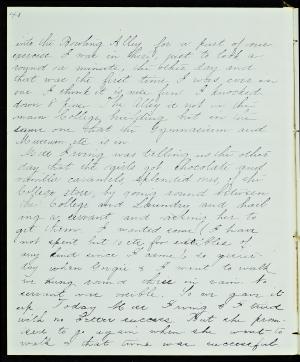 into the Bowling Alley for a sort of new
exercise I was in there just to look a
round a minute, the other day and
that was the first time I was ever in
one I think it is nice fun I knocked
down 8 . The Alley is not in the
main College building but in the
same one that the Gymnasium and
Museum etc is in
Miss Irving was telling us the other
day that the girls got Chocolate and
caramels, splendid ones, of the
College store, by going round between
the College and Laundry and hail
ing a servant and asking her to
get them. I wanted some (I have
not spent but 10 cts for eatibles of
any kind since I came) so yester
day when & I went to walk
we hung round there in vain no
servant was visible. So we gave it
up Today Miss Irving & I tried
with no better success. But she prom
ises to go again when she went to
walk & that time was successful